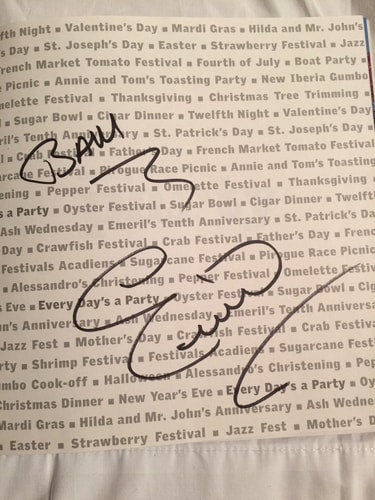 fth Night ■ Valentine's Day ■ Mardi Gras ■ Hilda and Mr. John's
's Day ■ St. Joseph's Day ■ Easter ■ Strawberry Festival ■ Jazz
French Market Tomato Festival ■ Fourth of July ■ Boat Party ■
Picnic ■ Annie and Tom's Toasting Party ■ New Iberia Gumbo
melette Festival ■ Thanksgiving ■ Christmas Tree Trimming ■
l ■ Sugar Bowl ■ Cigar Dinner ■ Twelfth Night ■ Valentine's Day
ril's Tenth Anniversary ■ St. Patrick's Day ■ St. Joseph's Day ■
BAM
l ■ Crab Festival ■ Father's Day ■ French Market Tomato Festival
arcane Festival ■ Pirogue Race Picnic ■ Annie and Tom's Toasting
ening ■ Pepper Festival ■ Omelette Festival ■ Thanksgiving ■
s a Party ■ Oyster Festival ■ Sugar Bowl ■ Cigar Dinner ■ Twelfth
Ash Wednesday ■ Emeril's Tenth Anniversary ■ St. Patrick's Day
Day ■ Crawfish Festival ■ Crab Festival ■ Father's Day ■ Frenc
Festivals Acadiens ■ Sugarcane Festival ■ Pirogue Race Picnic
■ Alessandro's Christening ■ Pepper Festival ■ Omelette Festiv
s Eve ■ Every Day's a Party ■ Oyster Festival ■ Sugar Bowl ■ Cig
Emeril
hn's Anniversary ■ Ash Wednesday ■ Emeril's Tenth Anniversar
Jazz Fest ■ Mother's Day ■ Crawfish Festival ■ Crab Festiva
rty ■ Shrimp Festival ■ Festivals Acadiens ■ Sugarcane Fest
umbo Cook-off ■ Halloween ■ Alessandro's Christening ■ Pep
Christmas Dinner ■ New Year's Eve ■ Every Day's a Party ■ Oy
Mardi Gras ■ Hilda and Mr. John's Anniversary ■ Ash Wedne
■ Easter ■ Strawberry Festival ■ Jazz Fest ■ Mother's D